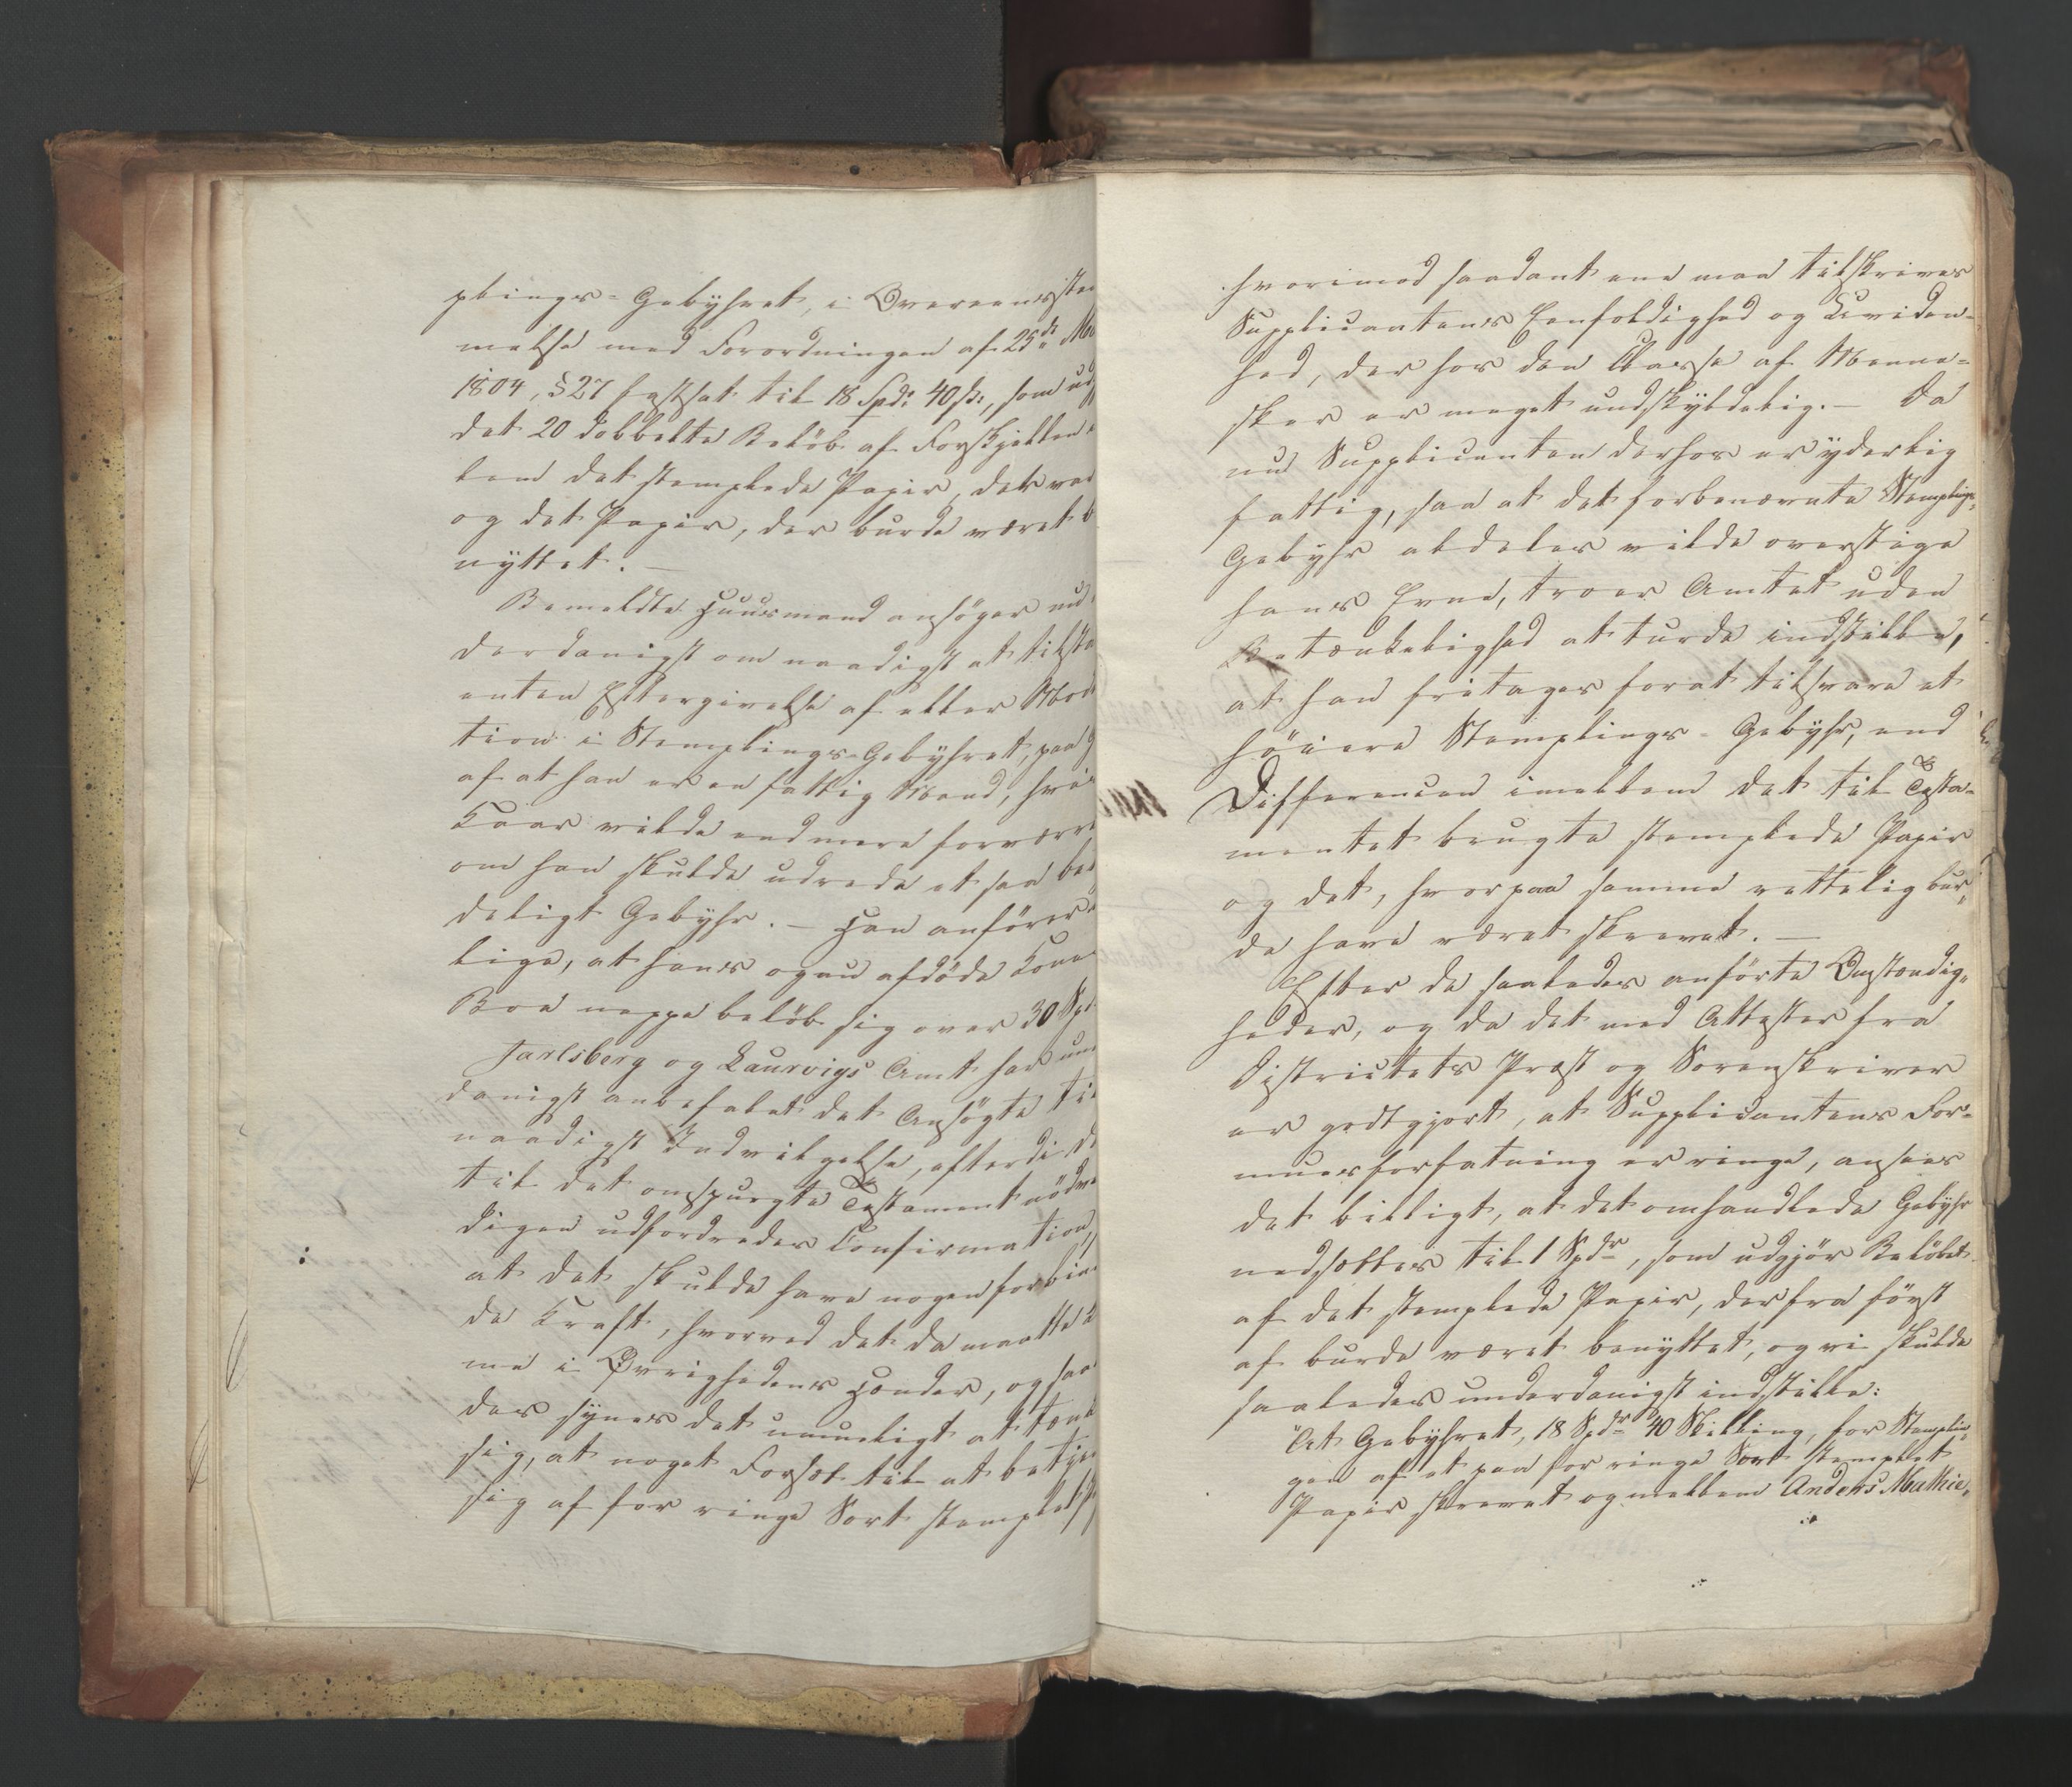 plings-Gebyhret, i Overeensstem
melse med Forordningen af 25de Ma
1804, §27 fastsat til 18 Spd: 40 ß:, som ud
det 20 dobbelte Beløb af Forskjellen
lem det stemplede Papir, det var
og det Papir, der burde været b
nyttet. —
Bemeldte Huusmand ansøger un
derdanigst om naadigst at tilsta
enten Eftergivelse af eller Mod
tion i Stemplings-Gebyhret, paa G
af at han er en fattig Mand, hvis
Kaar vilde end mere forværre
om han skulde udrede et saa be
deligt Gebyhr. — Han anfører
lige, at hans og nu afdøde Kone
Boe neppe beløb sig over 30 Spd
Jarlsberg og Laurvigs Amt har un
danigst anbefalet det Ansøgte ti
naadigst Indvilgelse, efterdi d
til det omspurgte Testament nødve
digen udfordredes Confirmation,
at det skulde have nogen forbin
de Kraft, hvorved det da maatte k
me i Øvrighedens Hænder, og saa
des synes det umueligt at tænk
sig, at noget Forsæt til at betjen
sig af for ringe Sort stemplet P
hvorimod saadant ene maa tilskrives
Supplicantens Eenfoldighed og Uviden-
hed, der hos den Classe af Menne-
sker er meget undskyldelig. — Da
nu Supplicanten derhos er yderlig
fattig, saa at det forbenævnte Stemplings-
Gebyhr aldeles vilde overstige
hans Evne, troer Amtet uden
Betænkelighed at turde indstille,
at han fritages for at tilsvare et
høiere Stemplings-Gebyhr, end
Differencen imellem det til Testa-
mentet brugte stemplede Papir
og det, hvorpaa samme rettelig bur-
de have været skrevet. —
Efter de saaledes anførte Omstændig-
heder, og da det med Attester fra
Districtets Præst og Sorenskriver
er godtgjort, at Supplicantens For-
muesforfatning er ringe, ansees
det billigt, at det omhandlede Gebyhr
nedsættes til 1 Spdr, som udgjør Beløbet
af det stemplede Papir, der fra først
af burde været benyttet, og vi skulde
saaledes underdanigst indstille:
"At Gebyhret, 18 Spdr 40 Skilling, for Stemplin-
gen af et paa for ringe Sort stemplet
Papir skrevet og mellem Anders Mathie-